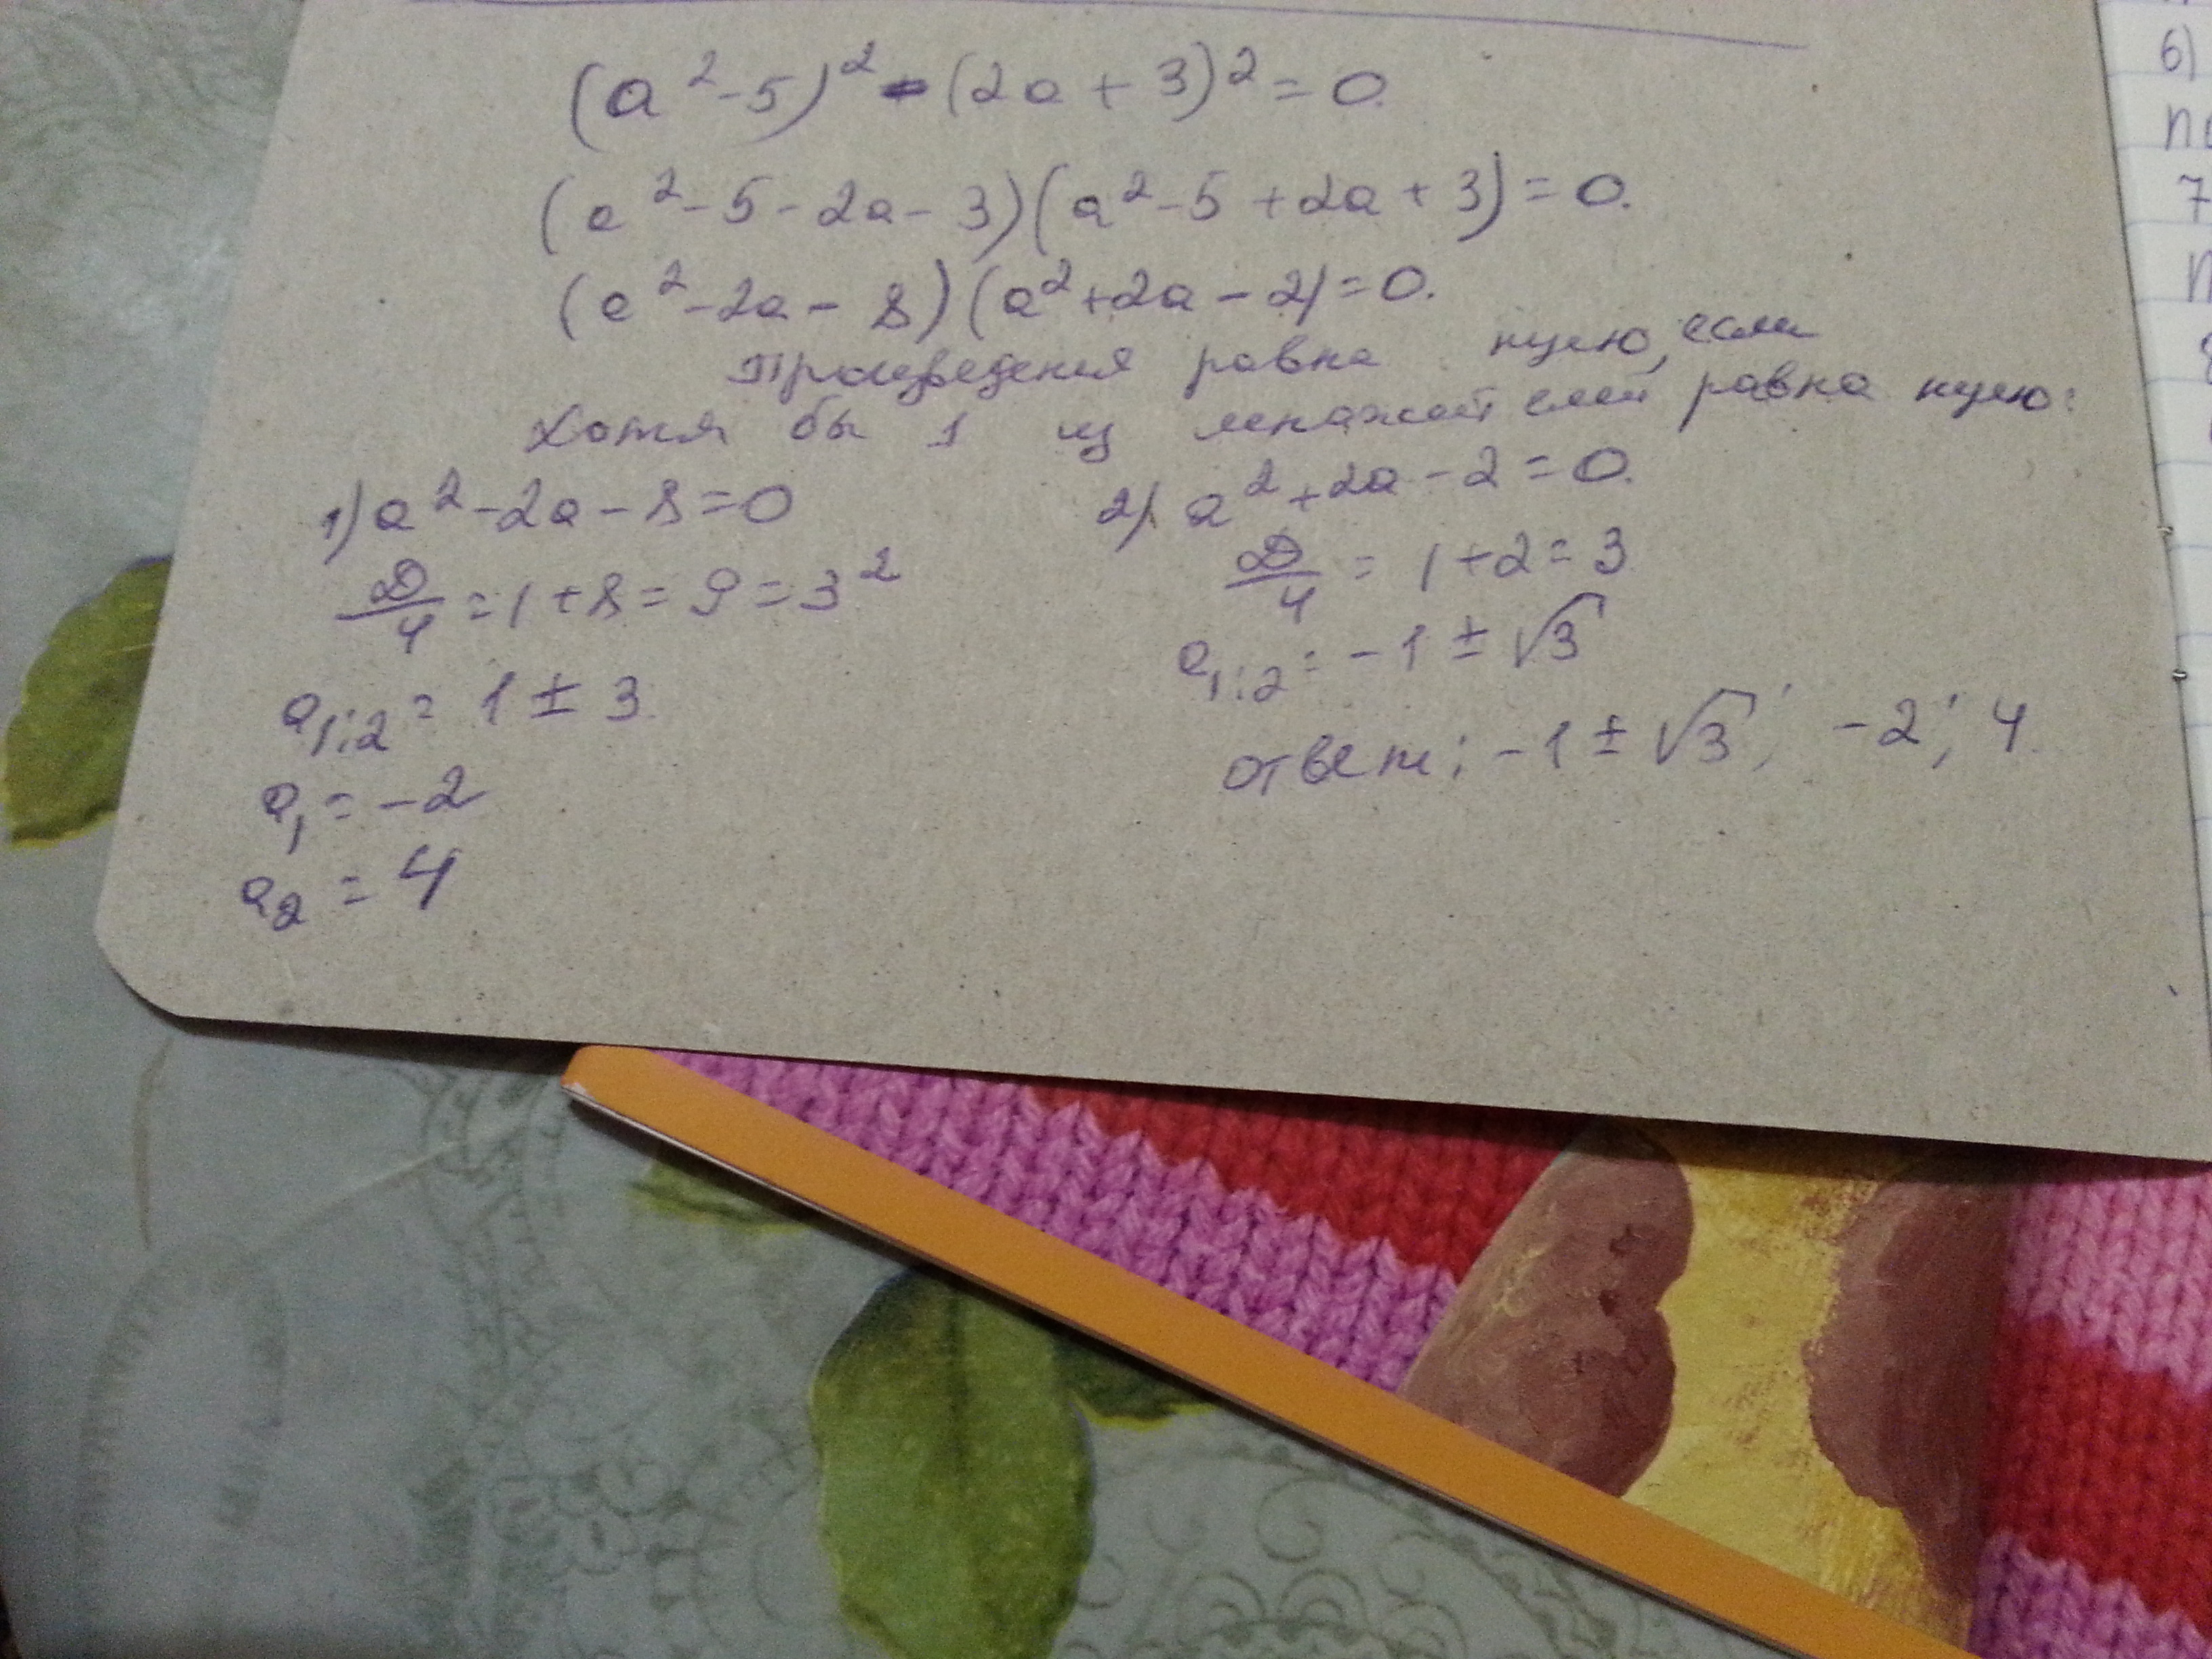 (a² - 5)² - (2a + 3)² = 0.
(a² - 5 - 2a - 3)(a² - 5 + 2a + 3) = 0.
(a² - 2a - 8)(a² + 2a - 2) = 0.
Произведения равна нулю, если
хотя бы 1 из множителей равна нулю:
1) a² - 2a - 8 = 0
D/4 = 1 + 8 = 9 = 3²
a₁;₂ = 1 ± 3
a₁ = -2
a₂ = 4
2) a² + 2a - 2 = 0.
D/4 = 1 + 2 = 3
a₁;₂ = -1 ± √3
ответ: -1 ± √3; -2; 4.
6)
7